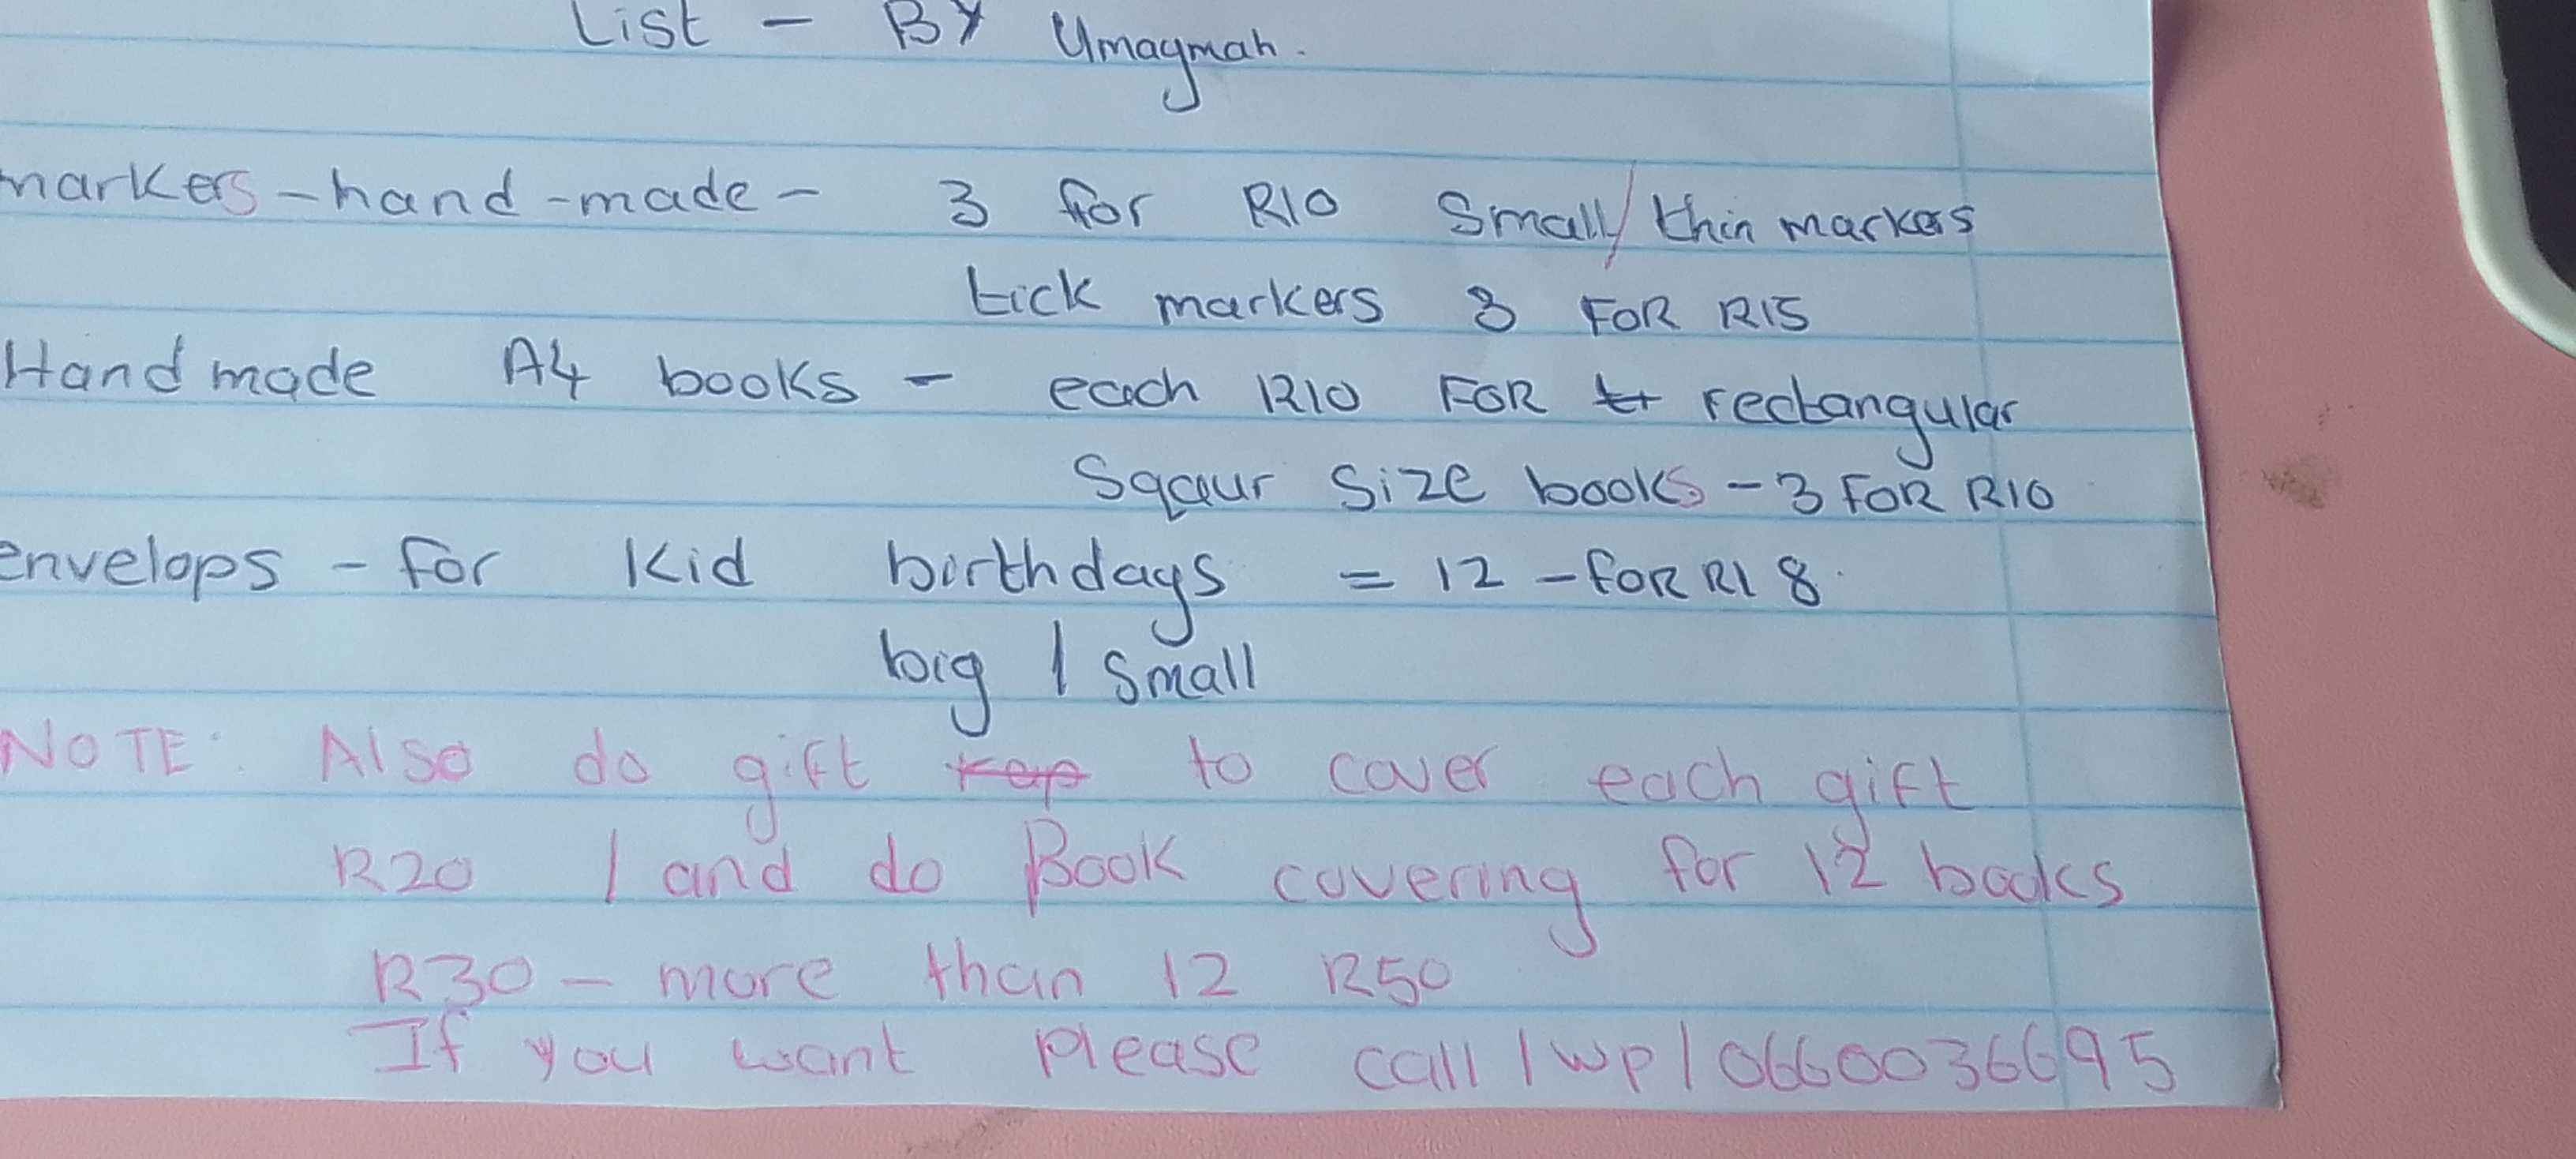 List - By Umaymah.
markers - hand - made - 3 for R10 Small / thin markers
tick markers 3 FOR R15
Handmade A4 books - each R10 FOR rectangular
Sqaur size books - 3 FOR R10
envelops - for Kid birthdays = 12 - FOR R18.
big / small
NOTE: Also do gift to cover each gift
R20 / and do Book covering for 12 books
R30 - more than 12 R50
If you want please call / wp / 0660036695